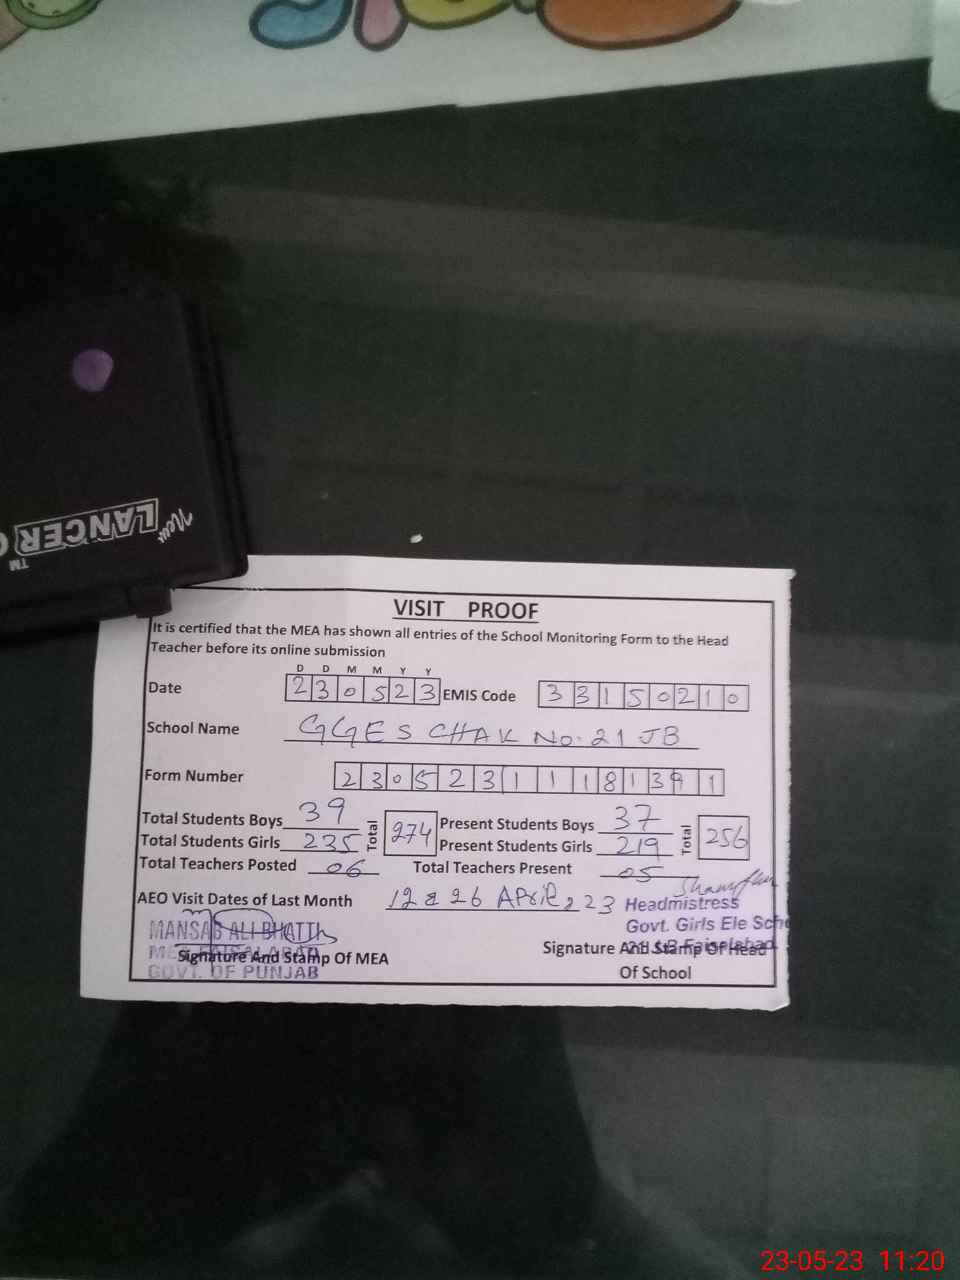 New
LANCER
TM
VISIT PROOF
It is certified that the MEA has shown all entries of the School Monitoring Form to the Head
Teacher before its online submission
D D M M Y Y
Date 230523 EMIS Code 33150210
School Name GGES CHAK No. 21 JB
Form Number
Total Students Boys 39 Total 274 Present Students Boys 37 Total 256
Total Students Girls 235 Present Students Girls 219
Total Teachers Posted 06 Total Teachers Present 05
AEO Visit Dates of Last Month 12 & 26 April, 23
Headmistress
MANSAB ALI BHATTI
Govt. Girls Ele Scho
21 J.B Faisalabad
MEA FAISALABAD
Signature And Stamp Of MEA
Signature And Stamp Of Head
GOVT. OF PUNJAB
Of School
23-05-23 11:20